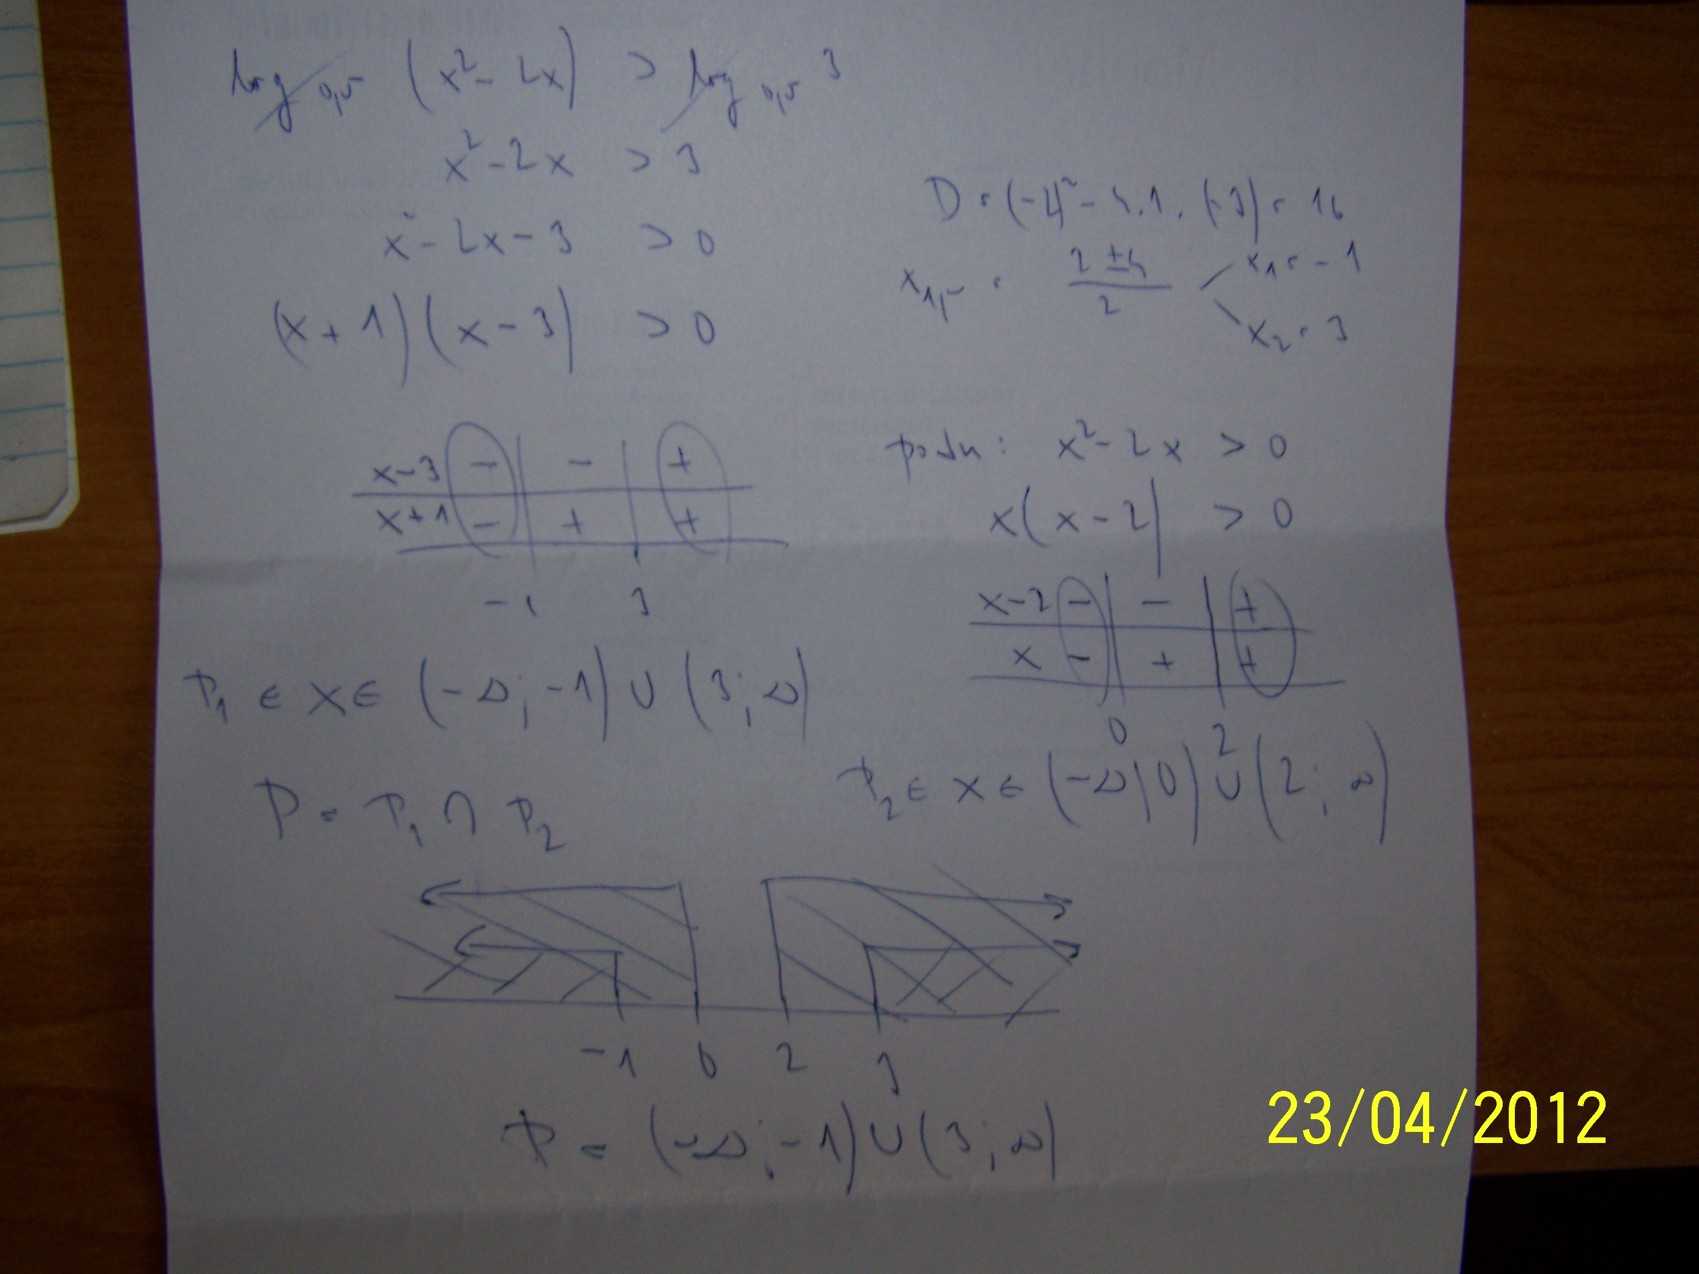 log₀,₅ (x² - 2x) > log₀,₅ 3
x² - 2x > 3
x² - 2x - 3 > 0
(x + 1)(x - 3) > 0
D = (-2)² - 4.1.(-3) = 16
x₁,₂ = (2 ± 4)/2
x₁ = -1
x₂ = 3
x-3 - - +
x+1 - + +
-1 3
P₁ ∈ x ∈ (-∞; -1) ∪ (3; ∞)
podm: x² - 2x > 0
x(x - 2) > 0
x-2 - - +
x - + +
0 2
P₂ ∈ x ∈ (-∞; 0) ∪ (2; ∞)
P = P₁ ∩ P₂
-1 0 2 3
P = (-∞; -1) ∪ (3; ∞)
23/04/2012